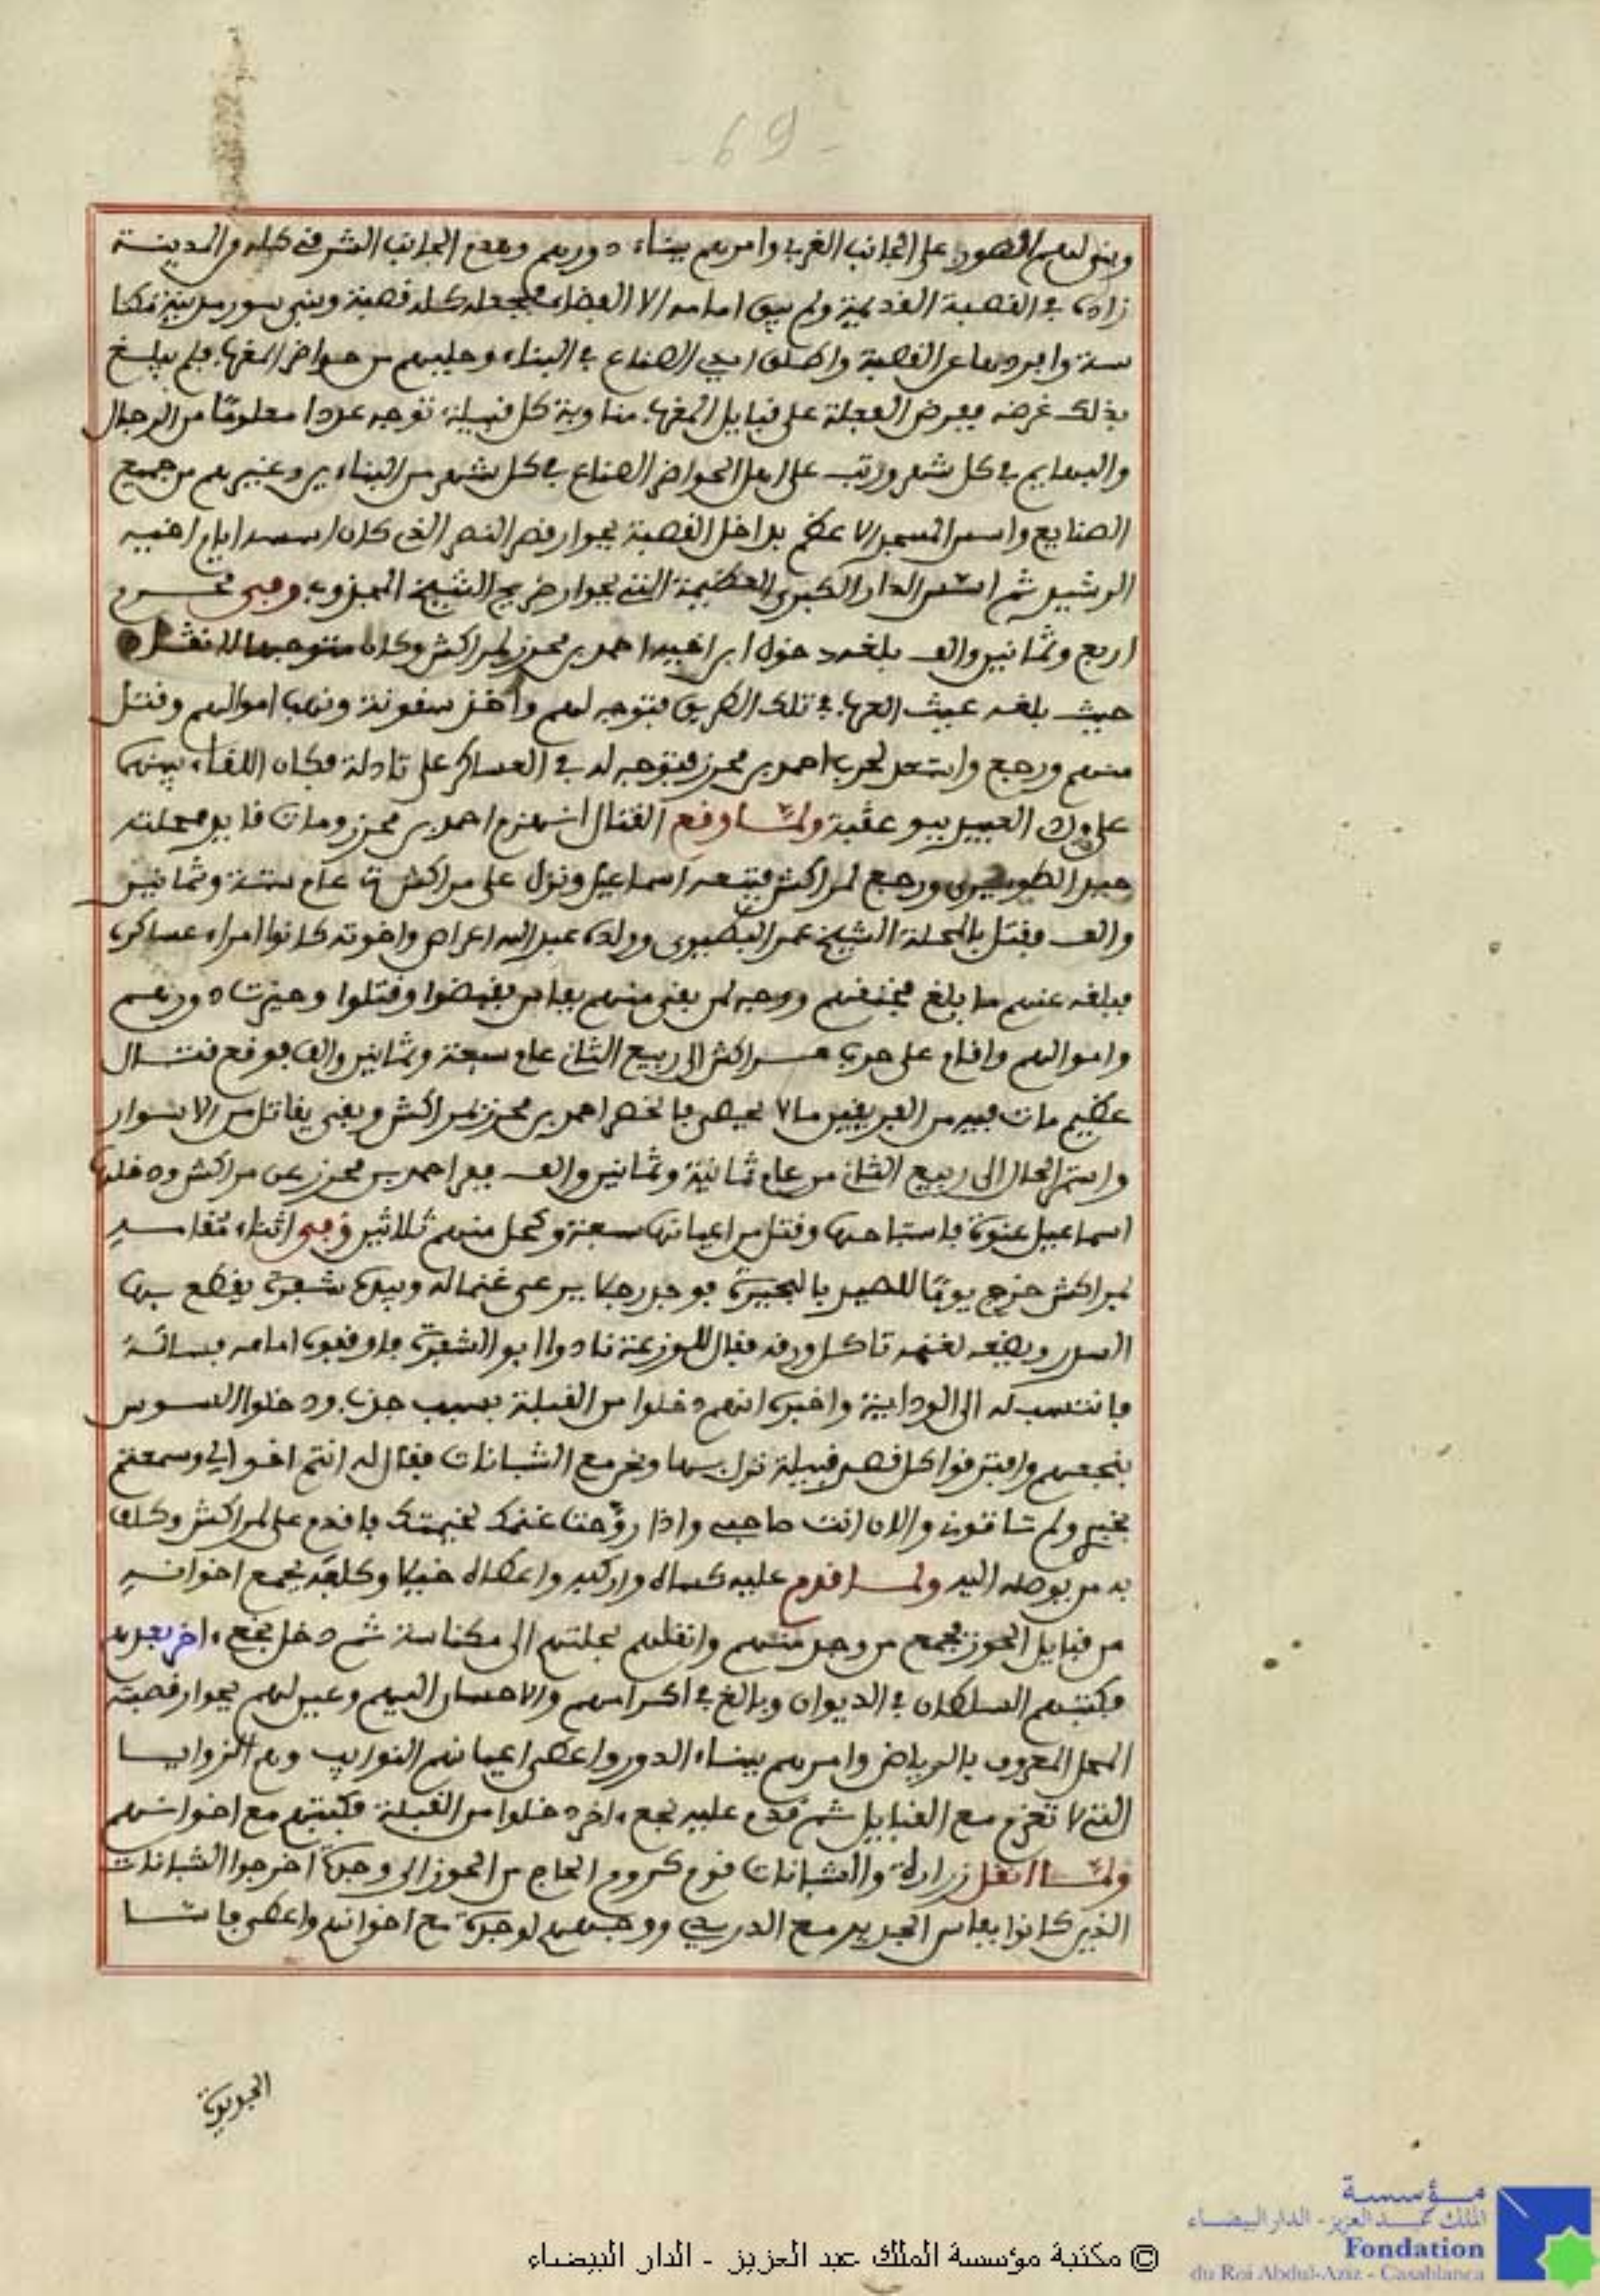 - 69 -
وبنى لهم القصور على الجانب الغربي وامرهم ببناء دورهم وهدم الجانب الشرقي كله من المدينة
زاده في القصبة القديمة ولم يبق امامه الا الفضاء فجعله كله قصبة وبنى سور مدينة مكنا
سة وافردها عن القصبة واطلق ايدي الصناع في البناء وجلبهم من حواضر المغرب فلم يبلغ
بذلك غرضه ففرض العملة على قبايل المغرب مناوبة كل قبيلة توجه عددا معلوما من الرجال
والبهايم في كل شهر ورتب على اهل الحواضر الصناع في كل شهر من البنايين وغيرهم من جميع
الصنايع واسس المسجد الاعظم بداخل القصبة بجوار قصر النصر الذي كان اسسه ايام اخيه
الرشيد ثم اسس الدار الكبرى العظيمة التي بجوار ضريح الشيخ المجذوب وفي محرم
اربع وثمانين والف بلغه دخول ابن اخيه احمد بن محرز لمراكش وكان متوجها للانقاد
حيث بلغه عيث العرب في تلك الطريق فتوجه لهم واخذ سقونة ونهب اموالهم وقتل
منهم ورجع واستعد لحرب احمد بن محرز فتوجه له في العساكر على تادلة فكان اللقاء بينهما
على واد العبيد ببو عقبة ولما وقع القتال انهزم احمد بن محرز ومات قايد محلته
حيد الطويري ورجع لمراكش فتبعه اسماعيل ونزل على مراكش عام ستة وثمانين
والف وقتل بالمحلة الشيخ عمر البطيوي وولده عبد الله اعراص واخوته كانوا امراء عساكره
فبلغه عنهم ما بلغ فخنقهم ووجه لمن بقي منهم بفاس فقبضوا وقتلوا وحيزت دورهم
واموالهم واقام على حرب مراكش الى ربيع الثاني عام سبعة وثمانين والف فوقع قتال
عظيم مات فيه من الفريقين ما لا يحصى فانحصر احمد بن محرز بمراكش وبقي يقاتل من الاسوار
واستمر الحال الى ربيع الثاني من عام ثمانية وثمانين والف ففر احمد بن محرز عن مراكش ودخلها
اسماعيل عنوة فاستباحها وقتل من اعيانها سبعة وكحل منهم ثلاثين وفي اثناء مقامه
بمراكش خرج يوما للصيد بالبحيرة فوجد رجلا يرعى غنما له وبيده شفرة يقطع بها
السدر ويضعه لغنمه تاكل ورقه فقال للوزعة نادوا ابو الشفرة فاوقفوه امامه فسأله
فانتسب له الى الودايية واخبره انهم دخلوا من القبلة بسبب جدب ودخلوا السوس
بنجعهم وافترقوا كل قصد قبيلة نزل بها ونحن مع الشبانات فقال له انتم اخوالي وسمعتم
بخبري ولم تاتوني والان انت صاحبي واذا روحت غنمك لخيمتك فاقدم علي لمراكش وكلف
به من يوصله اليه ولما قدم عليه كساه واركبه واعطاه خيلا وكلفه بجمع اخوانه
من قبايل الحوز فجمع من وجد منهم وانقلهم بحلتهم الى مكناسة ثم دخل نجع اخر بعدهم
فكتبهم السلطان في الديوان وبالغ في اكرامهم والاحسان اليهم وعين لهم بجوار قصبته
المحل المعروف بالرياض وامرهم ببناء الدور واعطى اعيانهم النوايب وهم الزوايا
التي لا تغرم مع القبايل ثم قدم عليه نجع اخر دخلوا من القبلة فكتبهم مع اخوانهم
ولما انقل زرارة والشبانات قوم كروم الحاج من الحوز الى وجدة اخرجوا الشبانات
الذين كانوا بفاس الجديد مع الدريدي ووجههم لوجدة مع اخوانهم واعطى فاسا
الجديدة
© مكتبة مؤسسة الملك عبد العزيز - الدار البيضاء
مؤسسة
الملك عبد العزيز - الدار البيضاء
Fondation
du Roi Abdul-Aziz - Casablanca